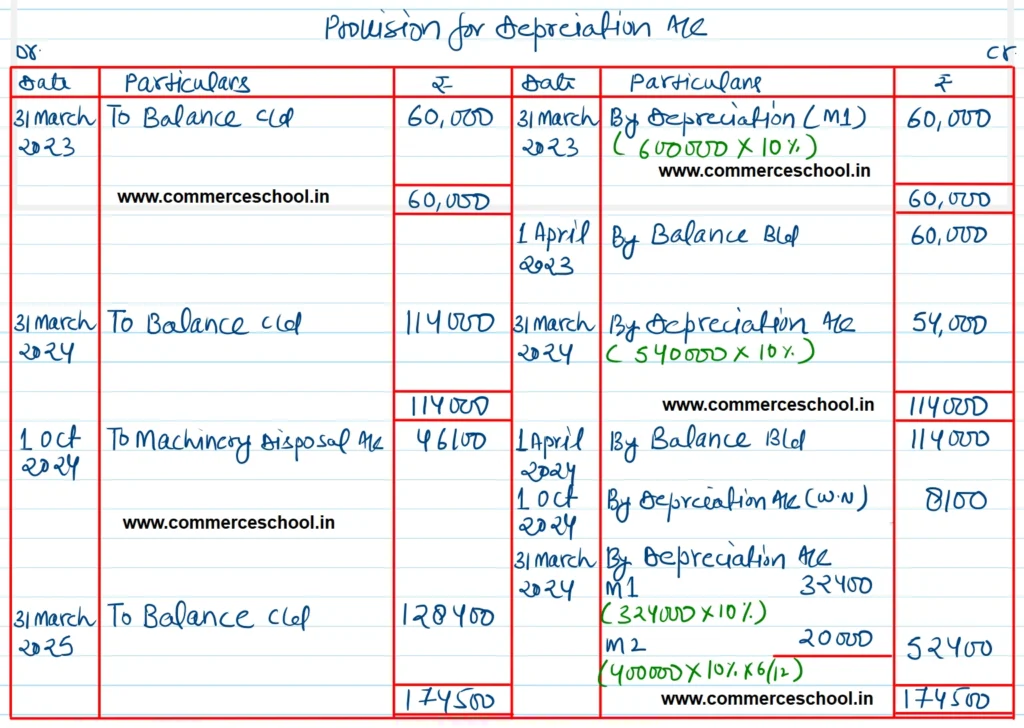 Provision for Depreciation A/c
Dr. Cr.
Date Particulars ₹ Date Particulars ₹
31 March To Balance c/d 60,000 31 March By Depreciation (M1) 60,000
2023 2023 (600000 X 10%)
www.commerceschool.in
www.commerceschool.in 60,000 60,000
1 April By Balance B/d 60,000
2023
31 March To Balance c/d 114000 31 March By Depreciation A/c 54,000
2024 2024 (540000 X 10%)
114000 www.commerceschool.in 114000
1 Oct To Machinery Disposal A/c 46100 1 April By Balance B/d 114000
2024 2024
1 Oct By Depreciation A/c (W.N) 8100
www.commerceschool.in 2024
31 March By Depreciation A/c
2024 M1 32400
31 March To Balance c/d 128400 (324000 X 10%)
2025 M2 20000 52400
(400000 X 10% X 6/12)
174500 www.commerceschool.in 174500